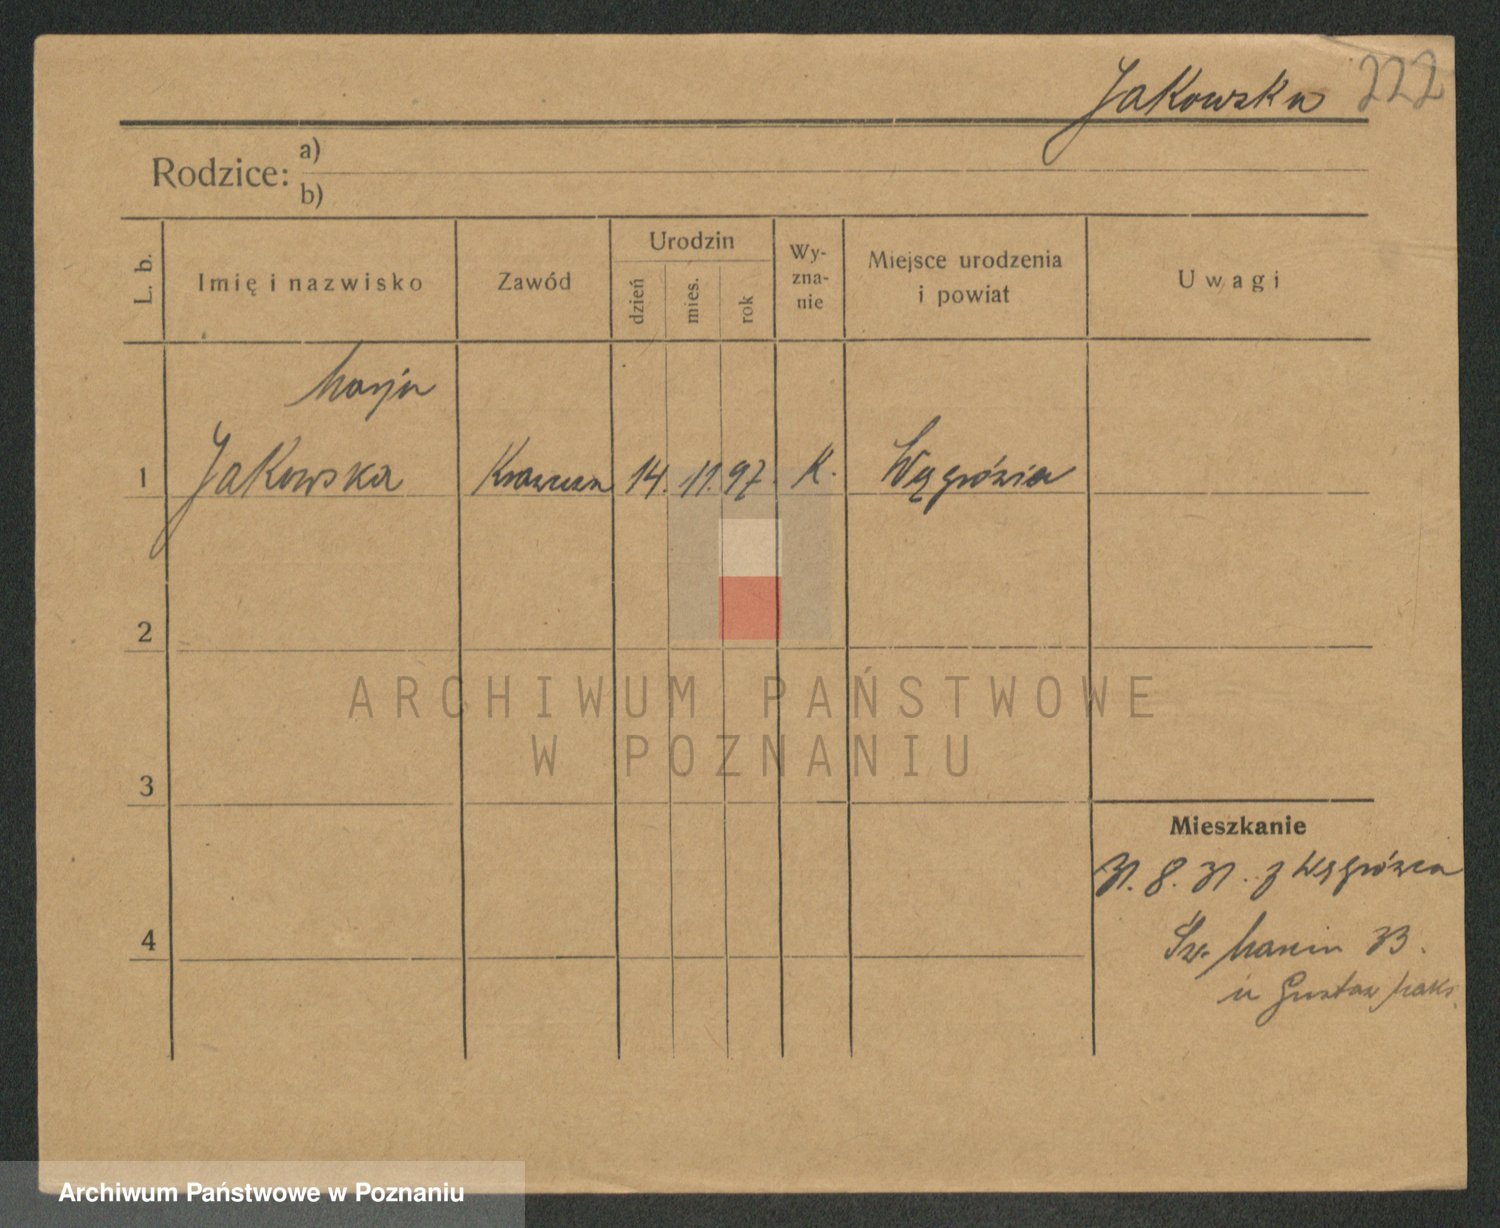 Jakowska 222
Rodzice: a)
b)
L. b.
Imię i nazwisko
Zawód
Urodzin
dzień
mies.
rok
Wy-
zna-
nie
Miejsce urodzenia
i powiat
Uwagi
Marja
1 Jakowska Krawcza 14. 11. 97. K.
2
3
4
Mieszkanie
31. 8. 31. z Wągrówca
Św. Marcin 33.
u Gustaw
ARCHIWUM PAŃSTWOWE
W POZNANIU
Archiwum Państwowe w Poznaniu